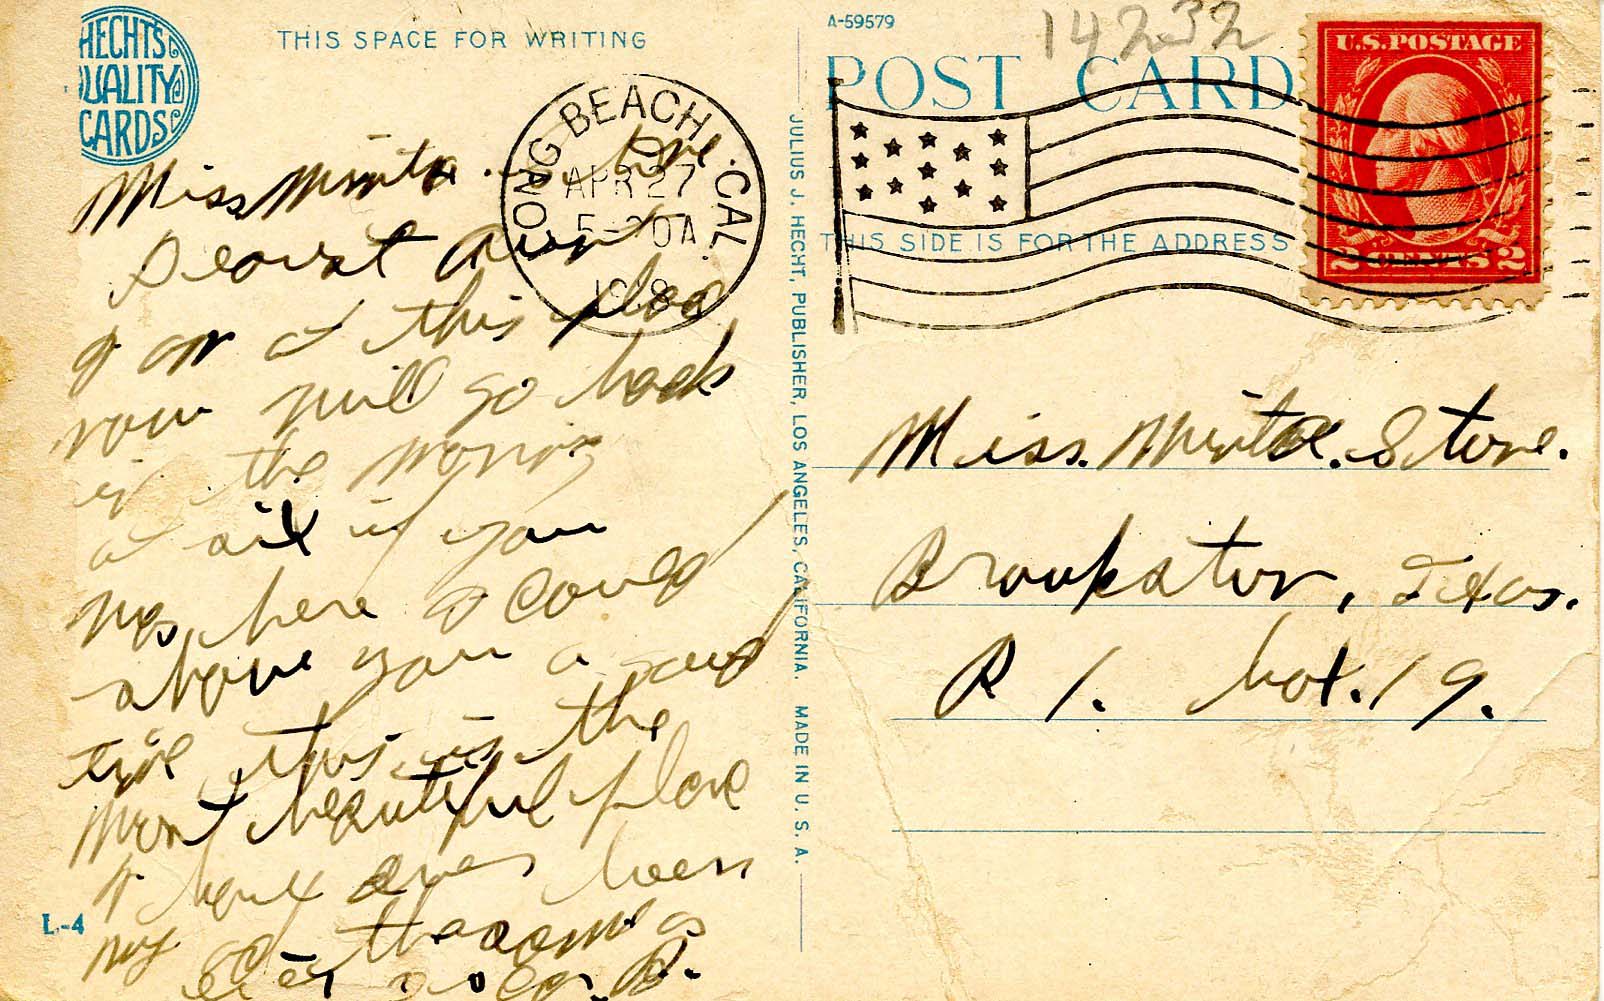 HECHT'S
QUALITY
CARDS
THIS SPACE FOR WRITING
LONG BEACH, CAL.
APR 27
1918
Miss Minta.
Dearest
I am at this place
now will go back
in the morning
at six if you
was here I could
show you a good
time this is the
most beautiful place
I have ever been
my the same as
ever
L-4
JULIUS J. HECHT, PUBLISHER, LOS ANGELES, CALIFORNIA. MADE IN U. S. A.
A-59579
14232
POST CARD
THIS SIDE IS FOR THE ADDRESS
U.S.POSTAGE
2 CENTS 2
Miss. Minta. Stone.
Brookston, Texas.
R 1. box. 19.